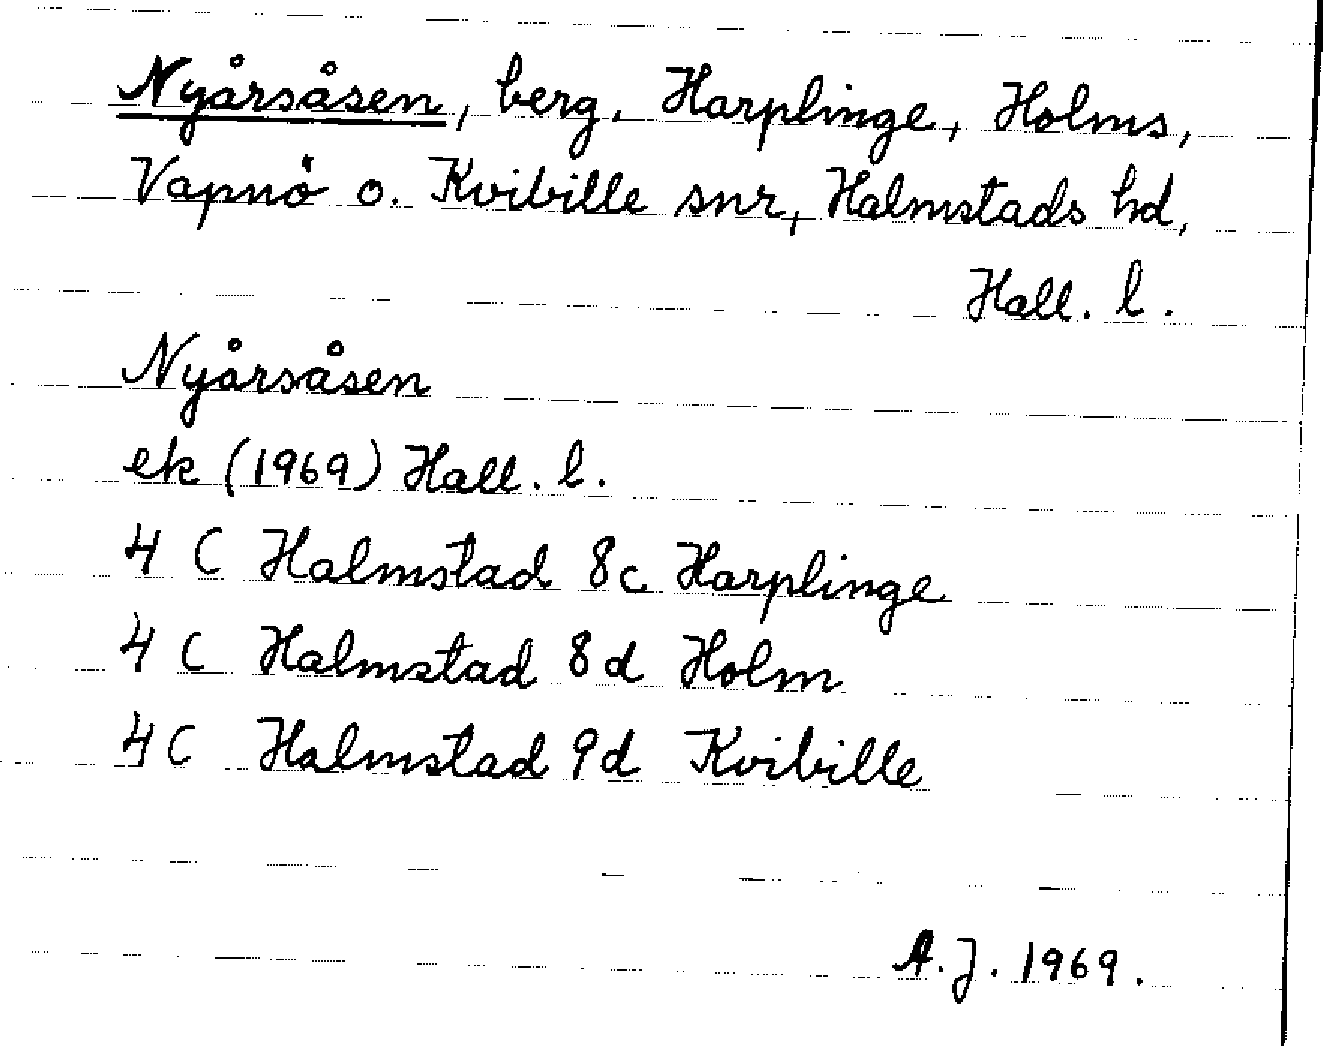 Nyårsåsen, berg, Harplinge, Holms,
Vapnö o. Kvibille snr, Halmstads hd,
Hall. l.
Nyårsåsen
ek (1969) Hall. l.
4 C Halmstad 8c Harplinge
4 C Halmstad 8d Holm
4C Halmstad 9d Kvibille
A.J. 1969.